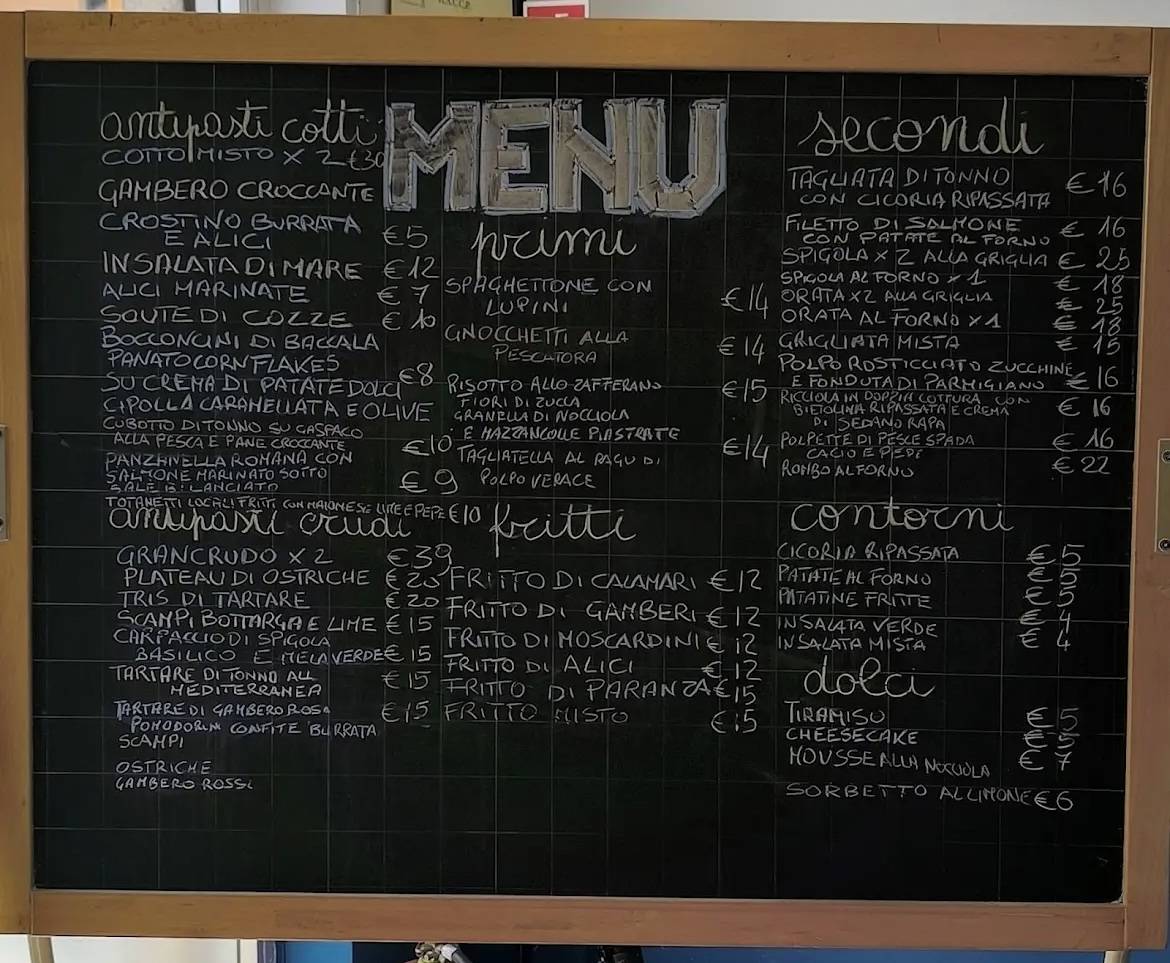 MENU
antipasti cotti
COTTO MISTO X 2 €30
GAMBERO CROCCANTE
CROSTINO BURRATA
E ALICI €5
INSALATA DI MARE €12
ALICI MARINATE € 7
SOUTE DI COZZE € 10
BOCCONCINI DI BACCALA
PANATO CORNFLAKES
SU CREMA DI PATATE DOLCI €8
CIPOLLA CARAMELLATA E OLIVE
CUBOTTO DI TONNO SU GASPACO
ALLA PESCA E PANE CROCCANTE €10
PANZANELLA ROMANA CON
SALMONE MARINATO SOTTO
SALE BILANCIATO € 9
TOTANETTI LOCALI FRITTI CON MAIONESE LIME E PEPE €10
antipasti crudi
GRANCRUDO X 2 €39
PLATEAU DI OSTRICHE €20
TRIS DI TARTARE €20
SCAMPI BOTTARGA E LIME €15
CARPACCIO DI SPIGOLA
BASILICO E MELA VERDE €15
TARTARE DI TONNO ALL €15
MEDITERRANEA
TARTARE DI GAMBERO ROSA €15
POMODORINI CONFITE BURRATA
SCAMPI
OSTRICHE
GAMBERO ROSSI
primi
SPAGHETTONE CON
LUPINI €14
GNOCCHETTI ALLA
PESCATORA €14
RISOTTO ALLO ZAFFERANO €15
FIORI DI ZUCCA
GRANELLA DI NOCCIOLA
E MAZZANCOLLE PIASTRATE
TAGLIATELLA AL RAGU DI €14
POLPO VERACE
fritti
FRITTO DI CALAMARI €12
FRITTO DI GAMBERI €12
FRITTO DI MOSCARDINI € 12
FRITTO DI ALICI €12
FRITTO DI PARANZA €15
FRITTO MISTO €15
secondi
TAGLIATA DI TONNO
CON CICORIA RIPASSATA €16
FILETTO DI SALMONE € 16
CON PATATE AL FORNO
SPIGOLA X 2 ALLA GRIGLIA € 25
SPIGOLA AL FORNO X 1 € 18
ORATA X2 ALLA GRIGLIA € 25
ORATA AL FORNO X 1 € 18
GRIGLIATA MISTA € 15
POLPO ROSTICCIATO ZUCCHINE
E FONDUTA DI PARMIGIANO € 16
RICCIOLA IN DOPPIA COTTURA CON
BIETOLINA RIPASSATA E CREMA € 16
DI SEDANO RAPA
POLPETTE DI PESCE SPADA € 16
CACIO E PEPE
ROMBO AL FORNO € 22
contorni
CICORIA RIPASSATA € 5
PATATE AL FORNO € 5
PATATINE FRITTE € 5
INSALATA VERDE € 4
INSALATA MISTA € 4
dolci
TIRAMISU € 5
CHEESECAKE € 5
MOUSSE ALLA NOCCIOLA € 7
SORBETTO AL LIMONE € 6